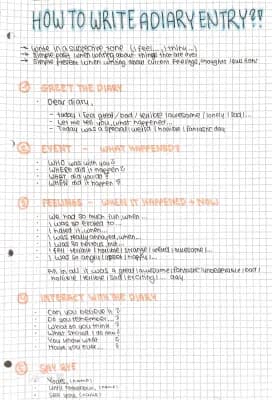 HOW TO WRITE A DIARY ENTRY?!
→ Write in a subjective tone (I feel..., I think...)
→ Simple past when writing about things that are over
→ Simple present when writing about current feelings, thoughts
① GREET THE DIARY
Dear diary,
- today I feel great / bad / terrible / awesome / lonely / sad / ...
- Let me tell you what happened...
- Today was a special / weird / horrible / fantastic day
② EVENT - WHAT HAPPENED?
- WHO was with you?
- WHERE did it happen?
- WHAT did you do?
- WHEN did it happen?
③ FEELINGS - WHEN IT HAPPENED + NOW
- We had so much fun when...
- I was so excited to...
- I hated it when...
- I was really annoyed when...
- I was so nervous
- I felt terrible / horrible / strange / weird / awesome / ...
- I was so angry / upset / happy / ...
All in all it was a great / awesome / fantastic / unbelievable / bad /
horrible / terrible / sad / exciting / ... day
④ INTERACT WITH THE DIARY
- Can you believe it?
- Do you remember...?
- What do you think?
- What should I do now?
- You know what
- Have you ever...?
⑤ SAY BYE
- Yours, (name)
- Until tomorrow, (name)
- See you, (name)